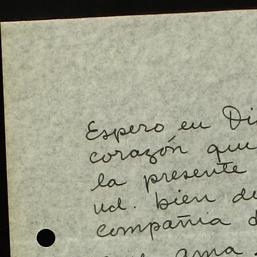 Espero en Di
corazón que
la presente
ud. bien de
compañia d
ama